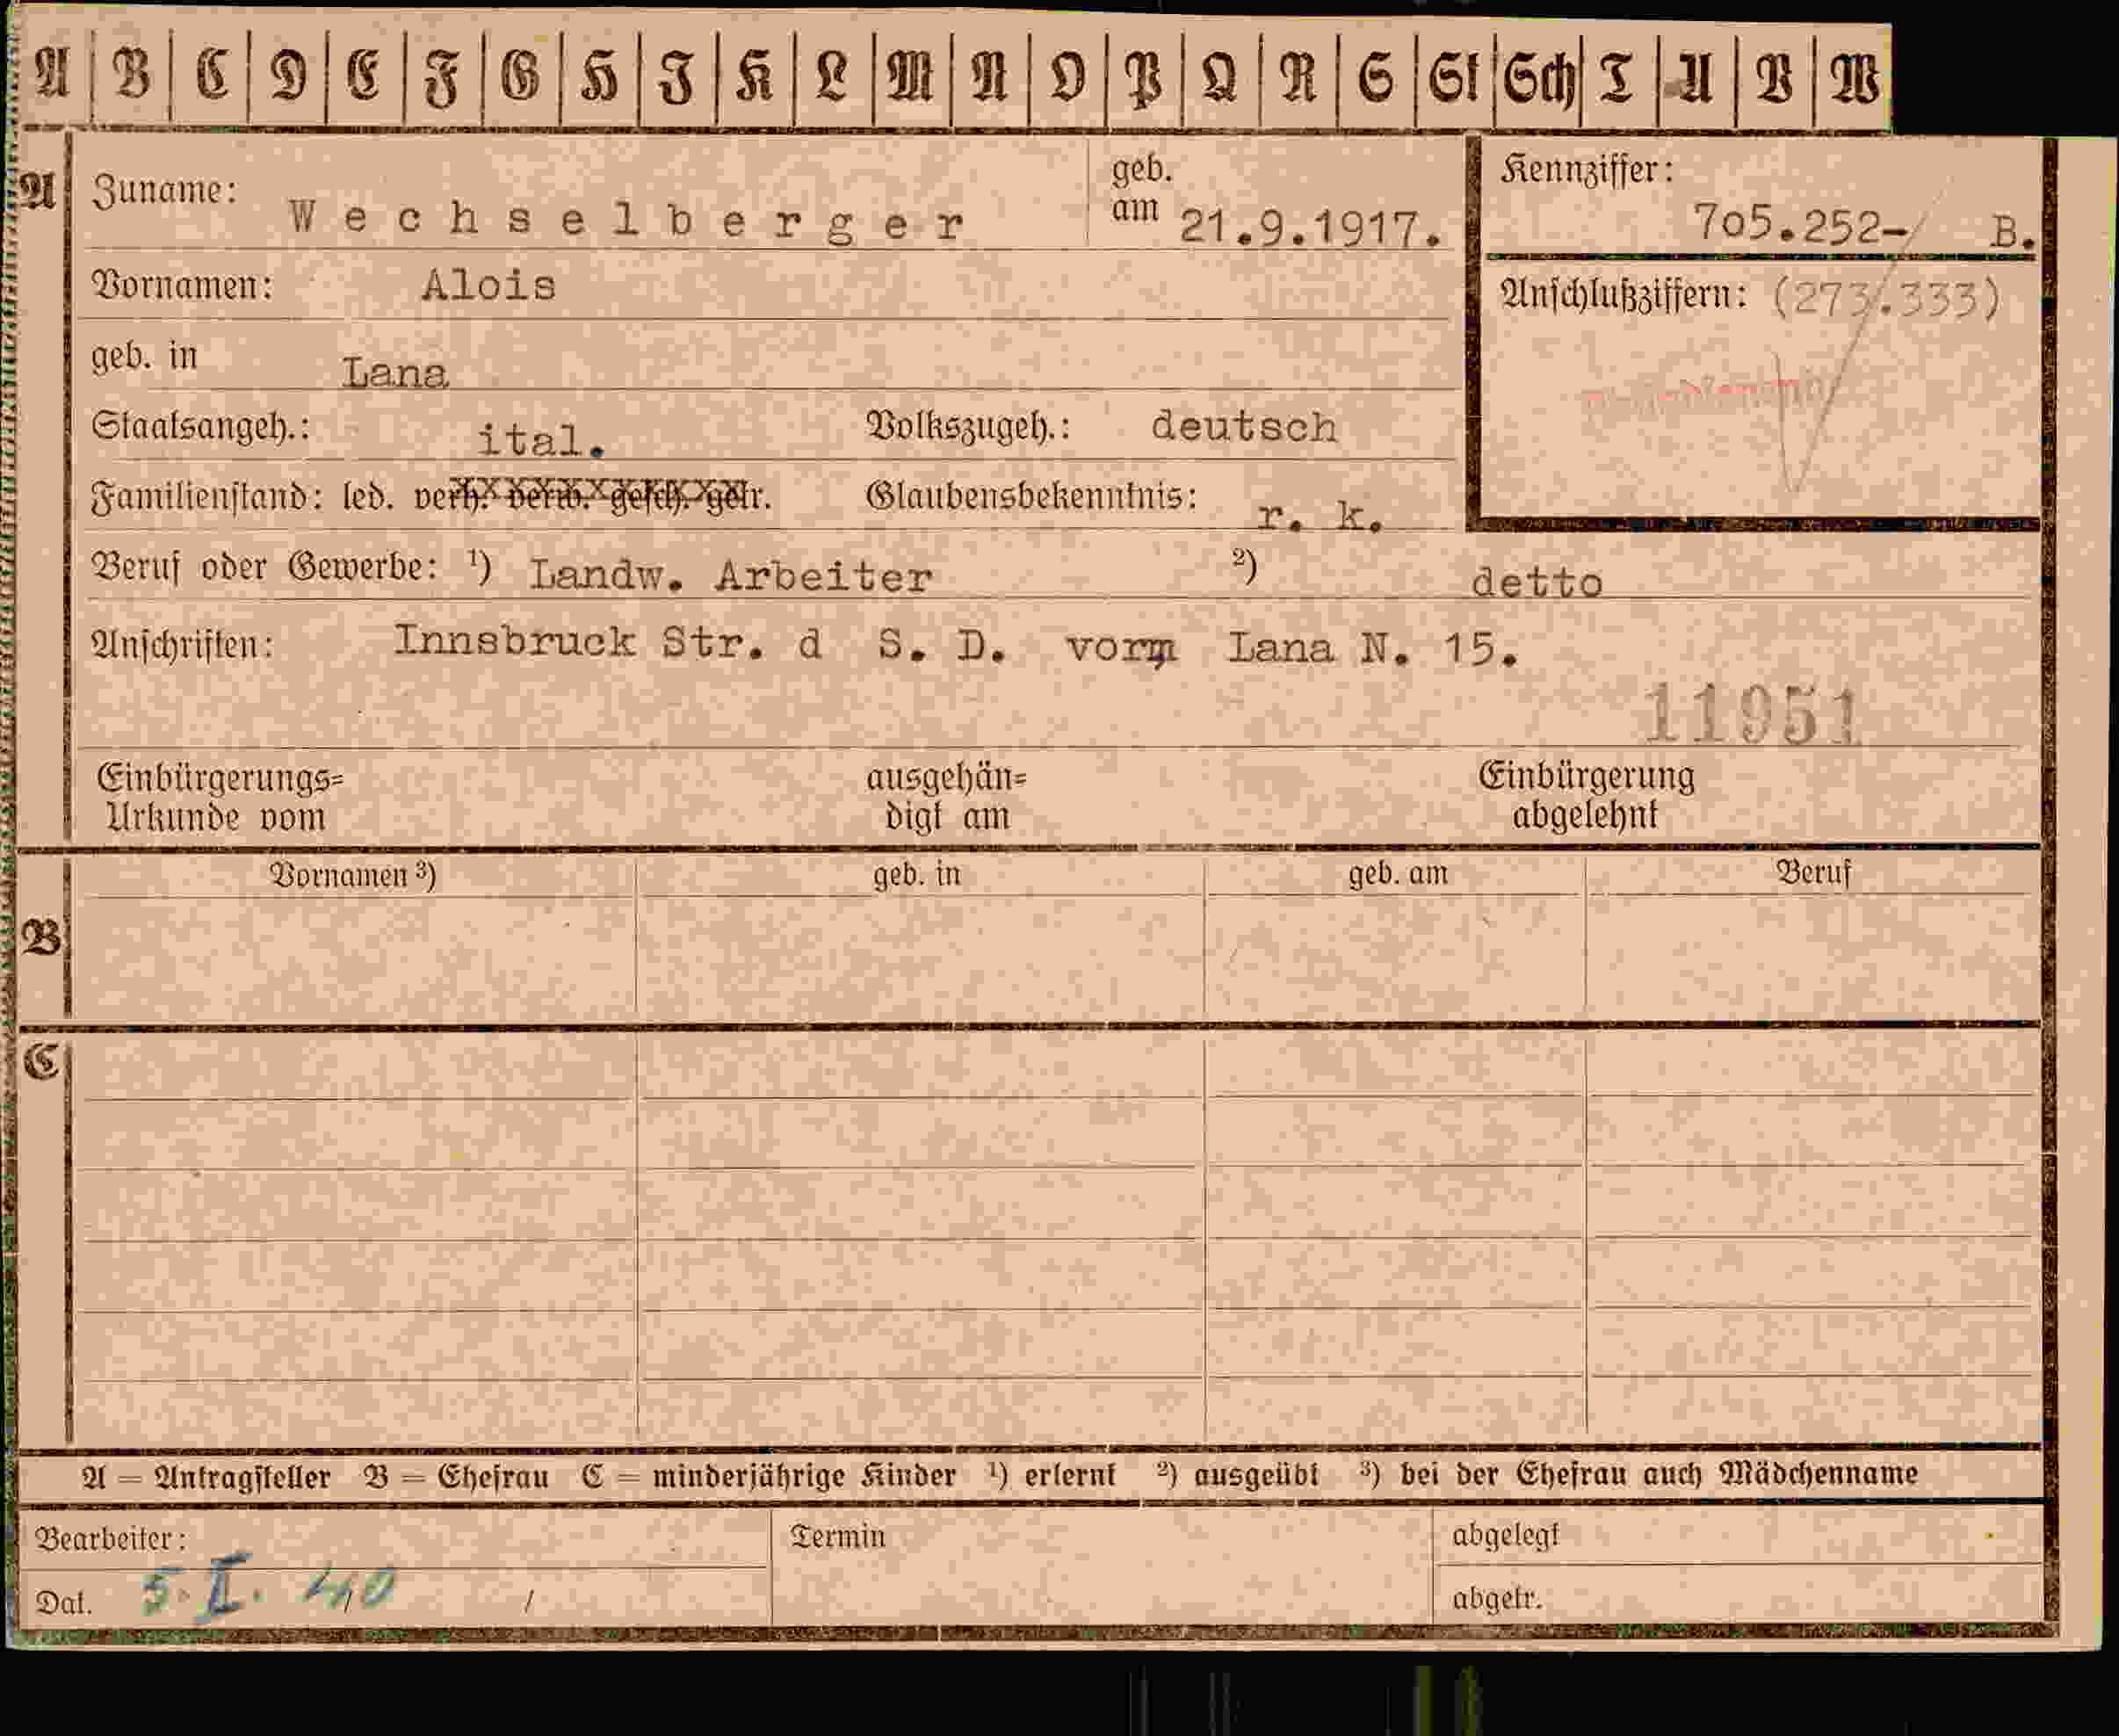 A B C D E F G H I K L M N O P Q R S St Sch T U V W
A Zuname: Wechselberger geb. am 21.9.1917. Kennziffer: 705.252-/ B.
Vornamen: Alois Anschlußziffern: (273.333)
geb. in Lana
Staatsangeh.: ital. Volkszugeh.: deutsch
Familienstand: led. verh. verw. gesch. getr. Glaubensbekenntnis: r. k.
Beruf oder Gewerbe: ¹) Landw. Arbeiter ²) detto
Anschriften: Innsbruck Str. d S. D. vorm Lana N. 15.
11951
Einbürgerungs= ausgehän= Einbürgerung
Urkunde vom digt am abgelehnt
Vornamen ³) geb. in geb. am Beruf
B
C
A = Antragsteller B = Ehefrau C = minderjährige Kinder ¹) erlernt ²) ausgeübt ³) bei der Ehefrau auch Mädchenname
Bearbeiter: Termin abgelegt
Dat. 5. I. 40 / abgetr.